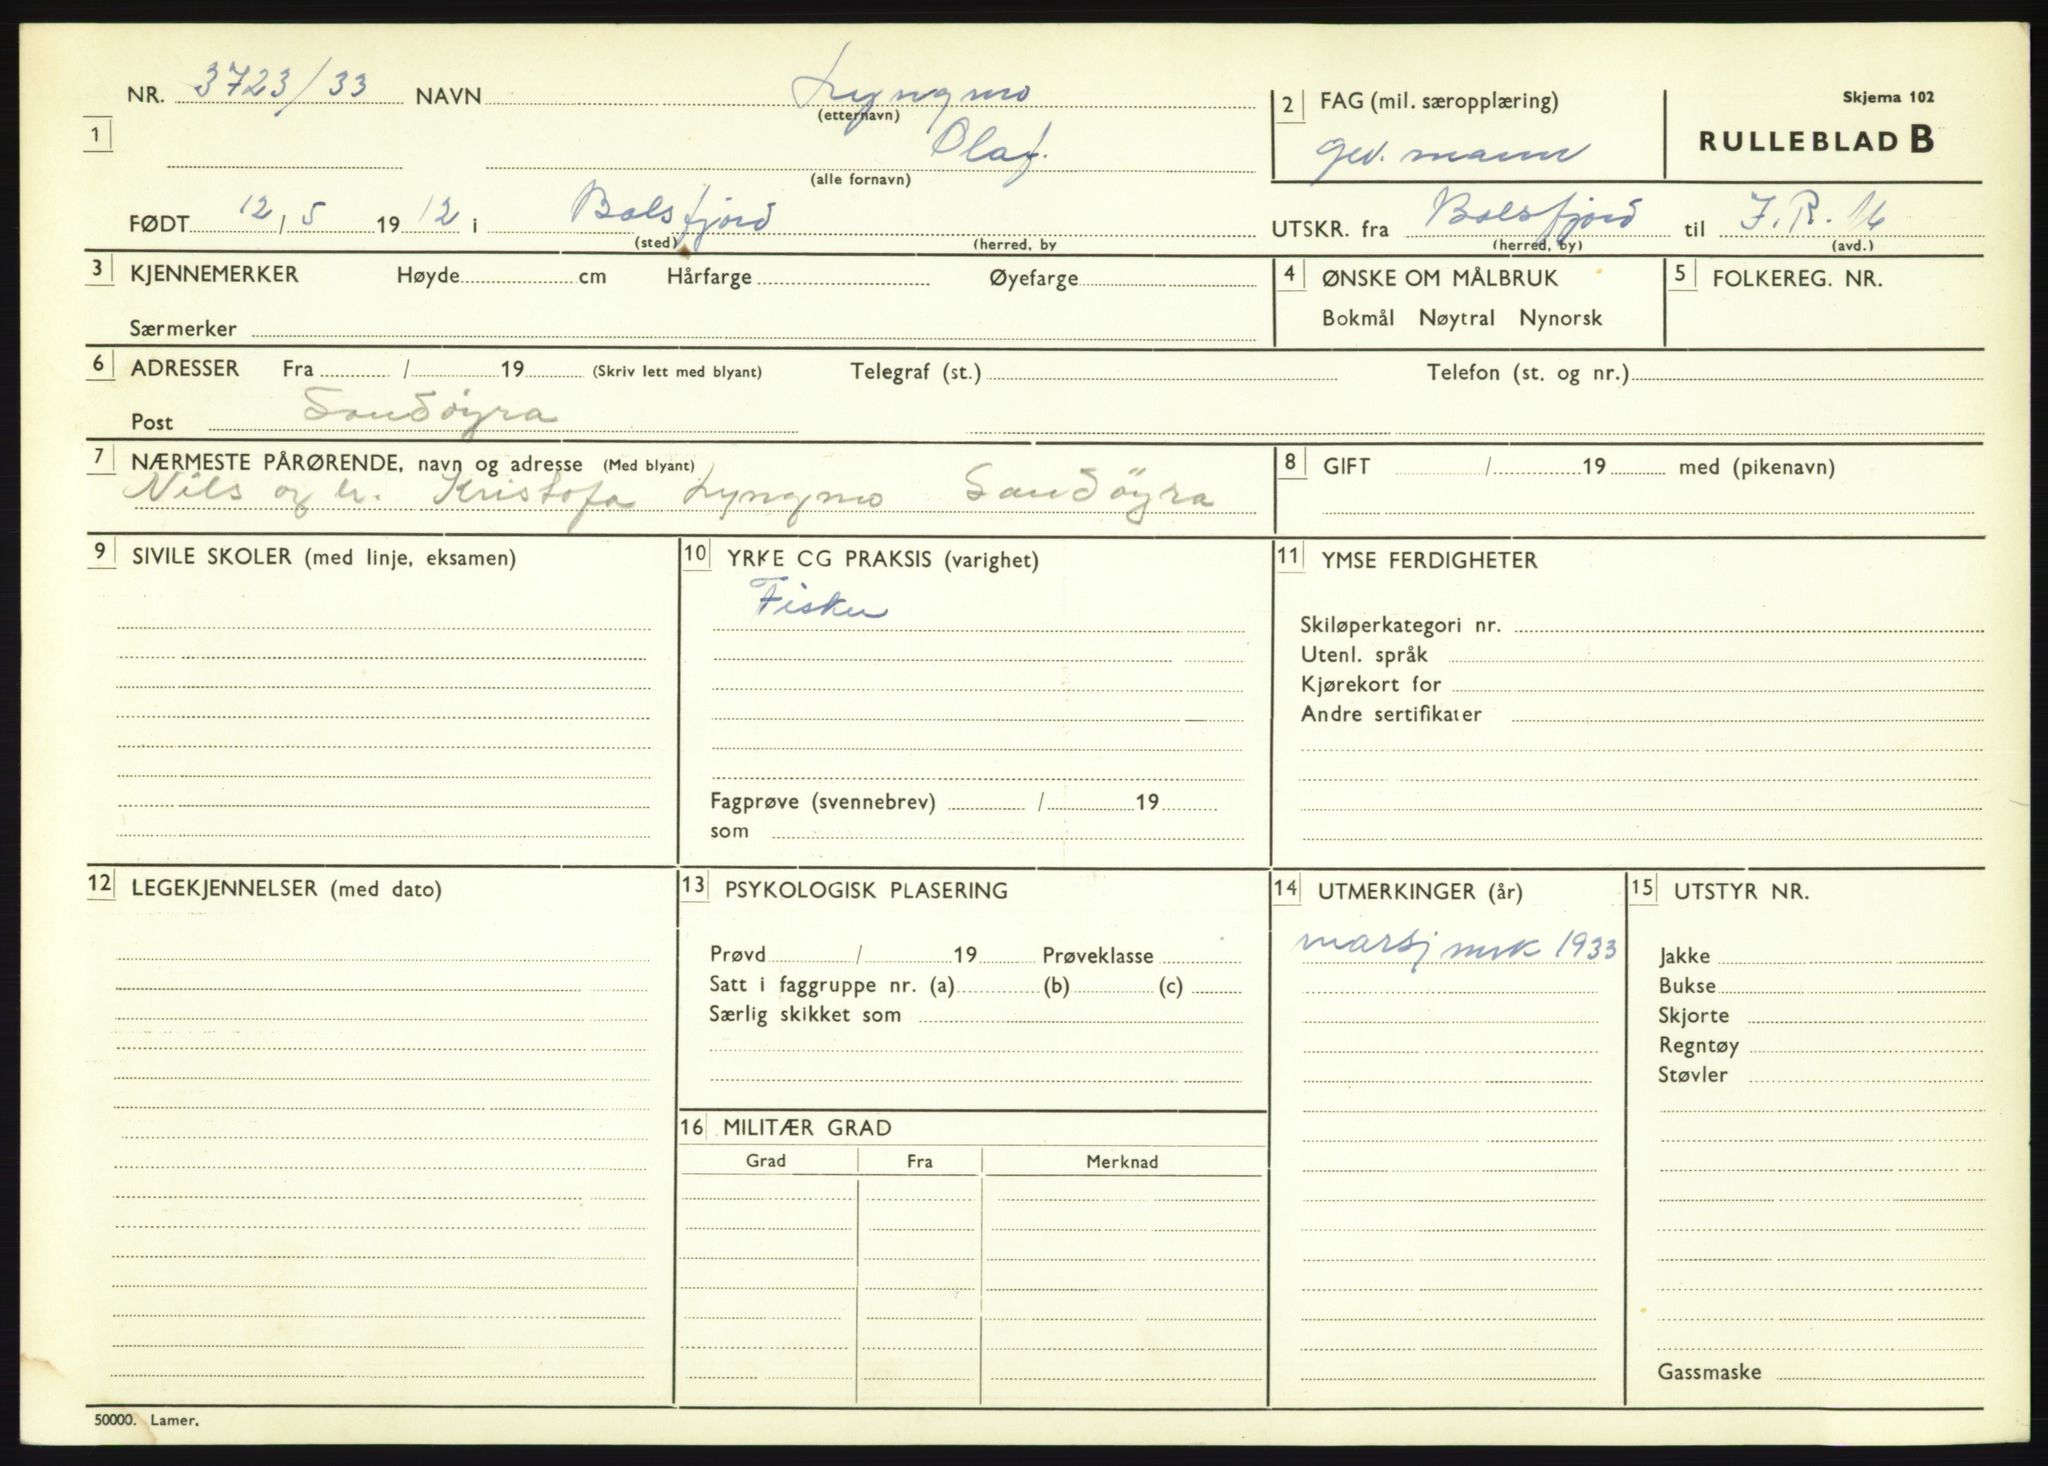 NR. 3723/33 NAVN Lyngmo
(etternavn)
2 FAG (mil. særopplæring)
Skjema 102
1
Olaf.
(alle fornavn)
gev. mann
RULLEBLAD B
FØDT 12/5 1912 i Balsfjord
(sted) (herred, by
UTSKR. fra Balsfjord til I.R. 16
(herred, by) (avd.)
3 KJENNEMERKER Høyde cm Hårfarge Øyefarge
Særmerker
4 ØNSKE OM MÅLBRUK
Bokmål Nøytral Nynorsk
5 FOLKEREG. NR.
6 ADRESSER Fra / 19 (Skriv lett med blyant) Telegraf (st.) Telefon (st. og nr.)
Post Sandøyra
7 NÆRMESTE PÅRØRENDE, navn og adresse (Med blyant)
Nils og h. Kristofa Lyngmo Sandöyra
8 GIFT / 19 med (pikenavn)
9 SIVILE SKOLER (med linje, eksamen)
10 YRKE CG PRAKSIS (varighet)
Fisker
Fagprøve (svennebrev) / 19
som
11 YMSE FERDIGHETER
Skiløperkategori nr.
Utenl. språk
Kjørekort for
Andre sertifikater
12 LEGEKJENNELSER (med dato)
13 PSYKOLOGISK PLASERING
Prøvd / 19 Prøveklasse
Satt i faggruppe nr. (a) (b) (c)
Særlig skikket som
14 UTMERKINGER (år)
marsj mrk 1933
15 UTSTYR NR.
Jakke
Bukse
Skjorte
Regntøy
Støvler
Gassmaske
16 MILITÆR GRAD
Grad Fra Merknad
50000. Lamer.